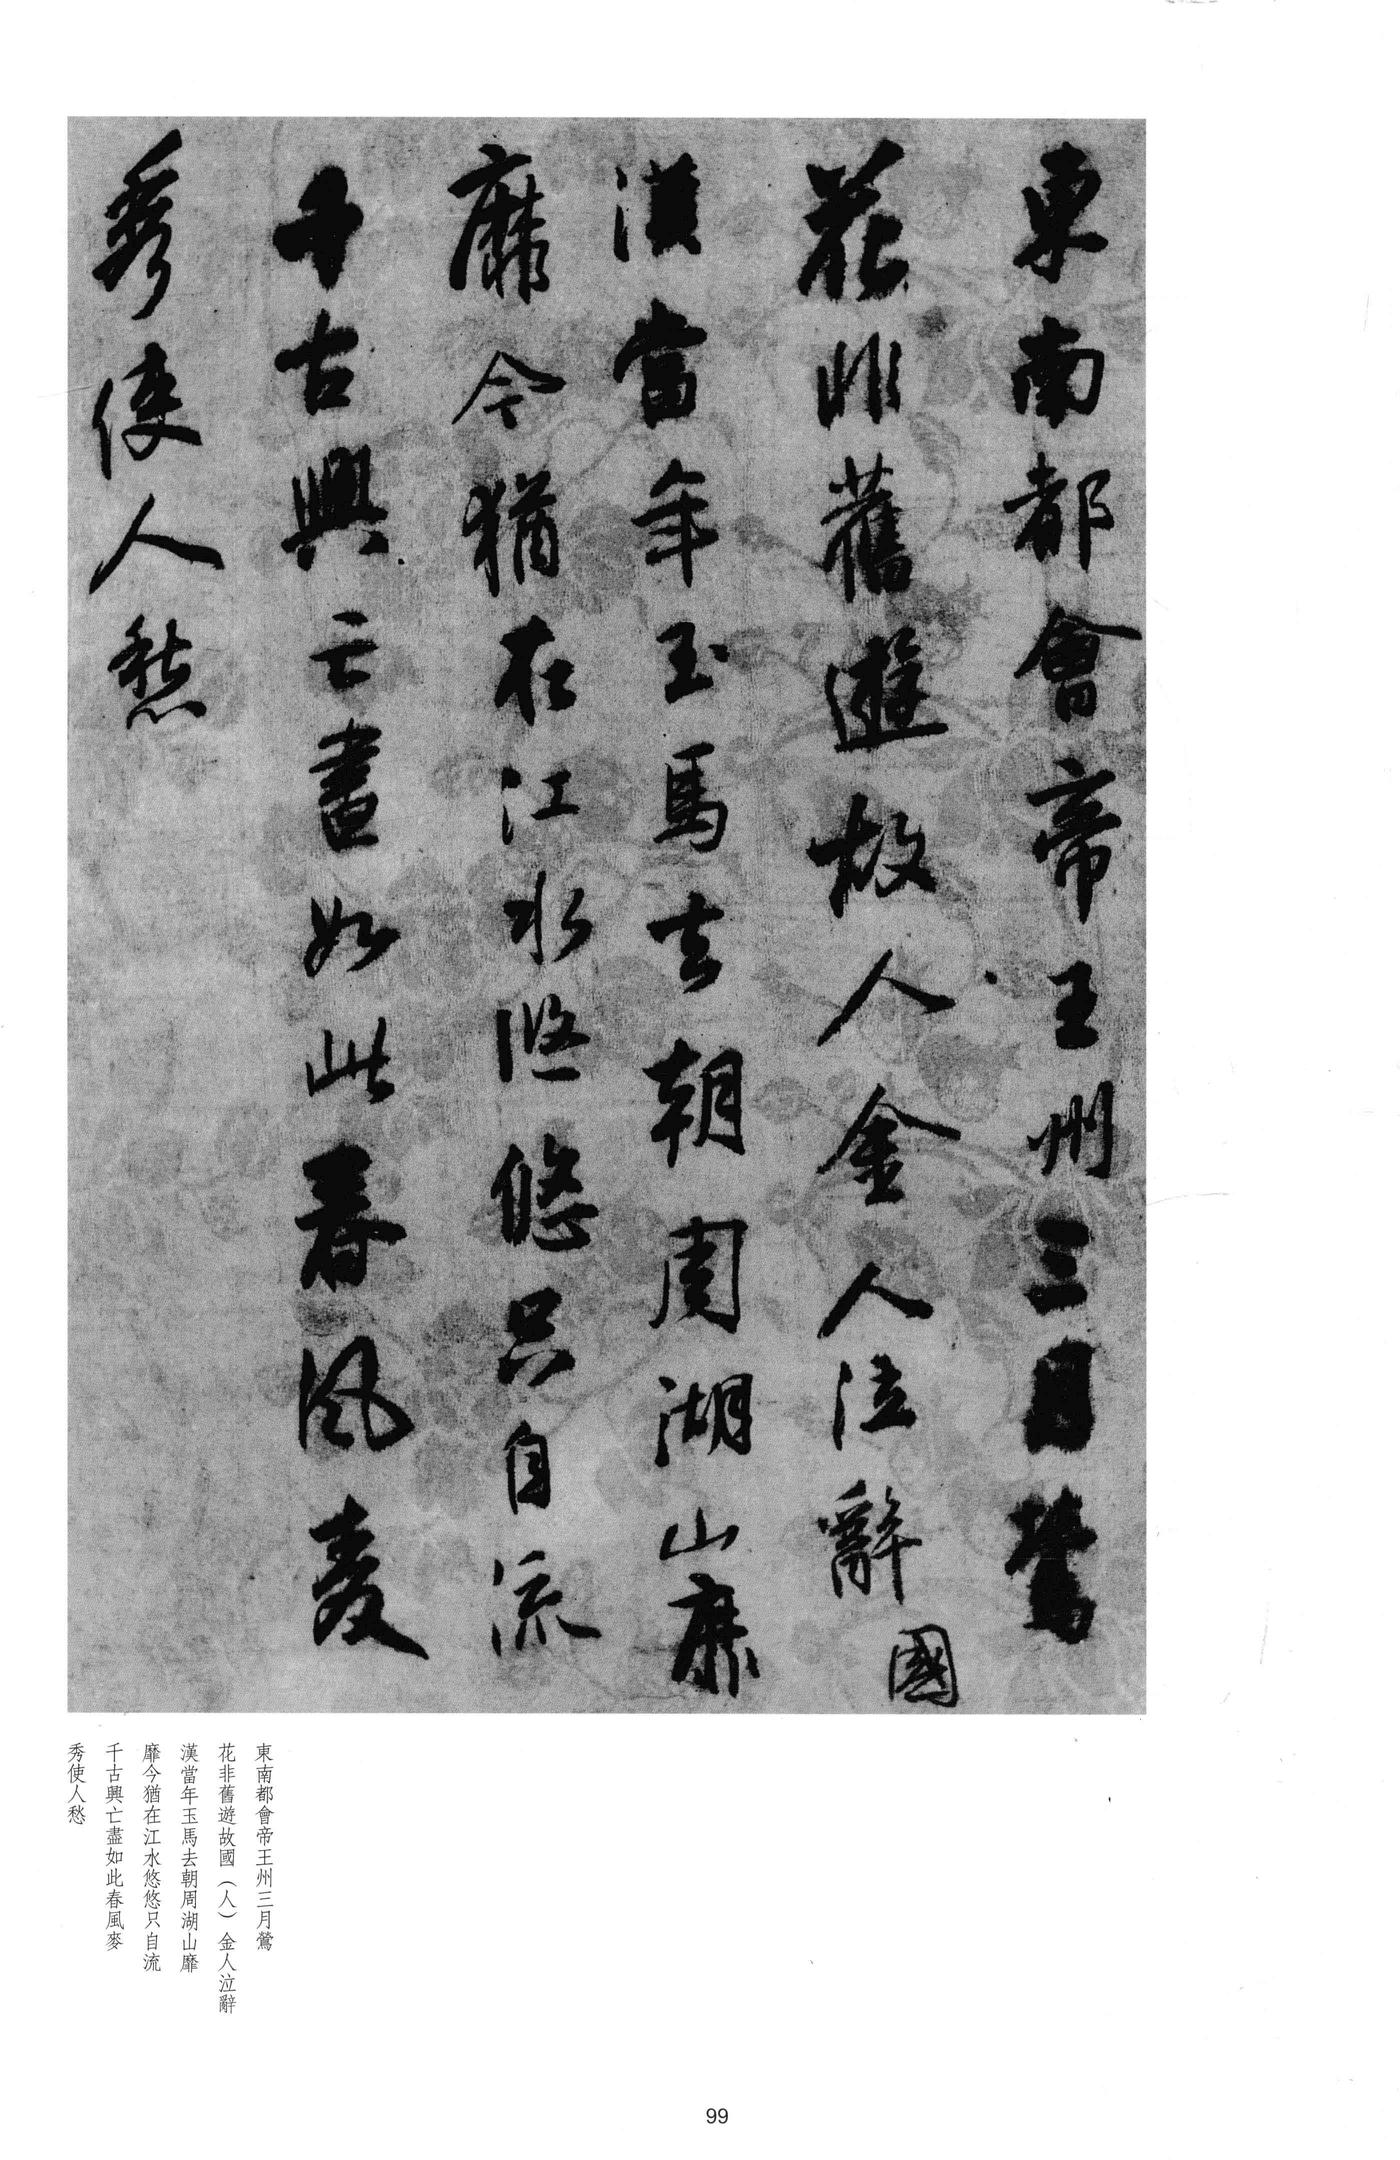 東南都會帝王州三月鶯
花非舊遊故人金人泣辭
國
漢當年玉馬去朝周湖山靡
靡今猶在江水悠悠只自流
千古興亡盡如此春風麥
秀使人愁
東南都會帝王州三月鶯
花非舊遊故國（人）金人泣辭
漢當年玉馬去朝周湖山靡
靡今猶在江水悠悠只自流
千古興亡盡如此春風麥
秀使人愁
99